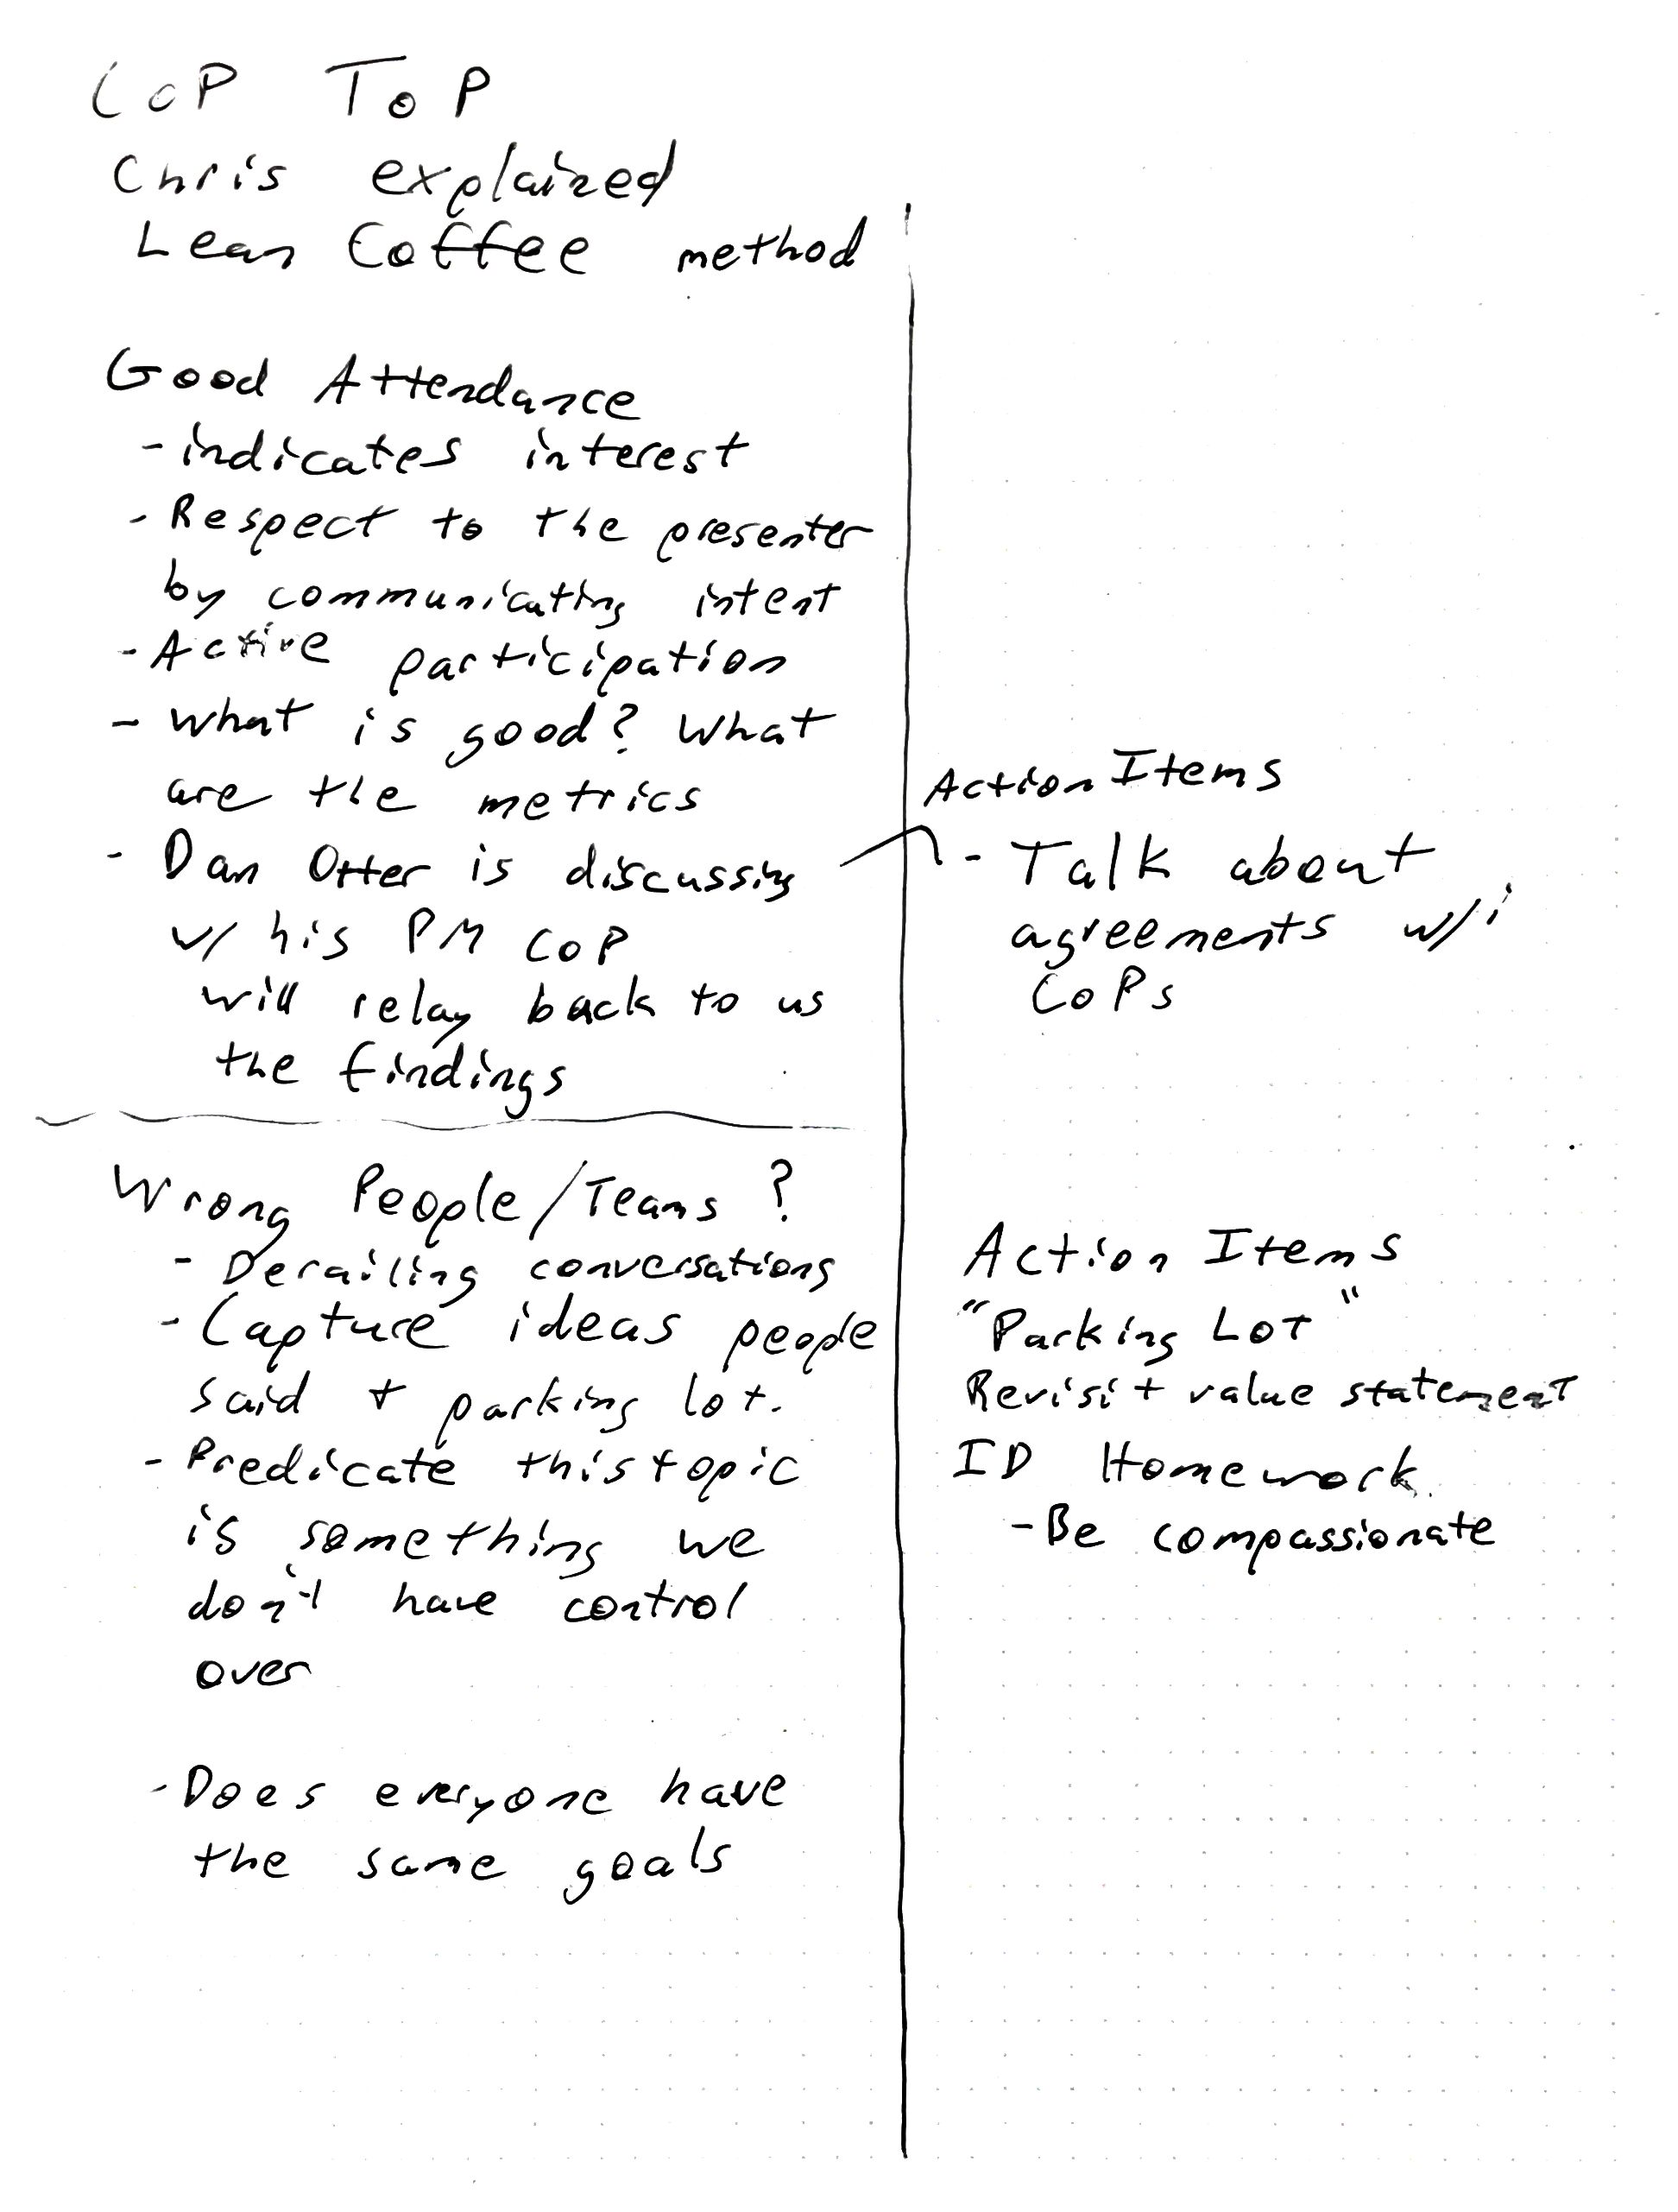 CoP ToP
Chris explained
Lean Coffee method
Good Attendance
- indicates interest
- Respect to the presenter
by communicating intent
- Active participation
- What is good? What
are the metrics
- Dan Otter is discussing
w/ his PM CoP
will relay back to us
the findings
Action Items
- Talk about
agreements w/i
CoPs
Wrong People/Teams ?
- Derailing conversations
- Capture ideas people
said + parking lot.
- Predicate this topic
is something we
don't have control
over
- Does everyone have
the same goals
Action Items
"Parking Lot"
Revisit value statement
ID Homework
- Be compassionate